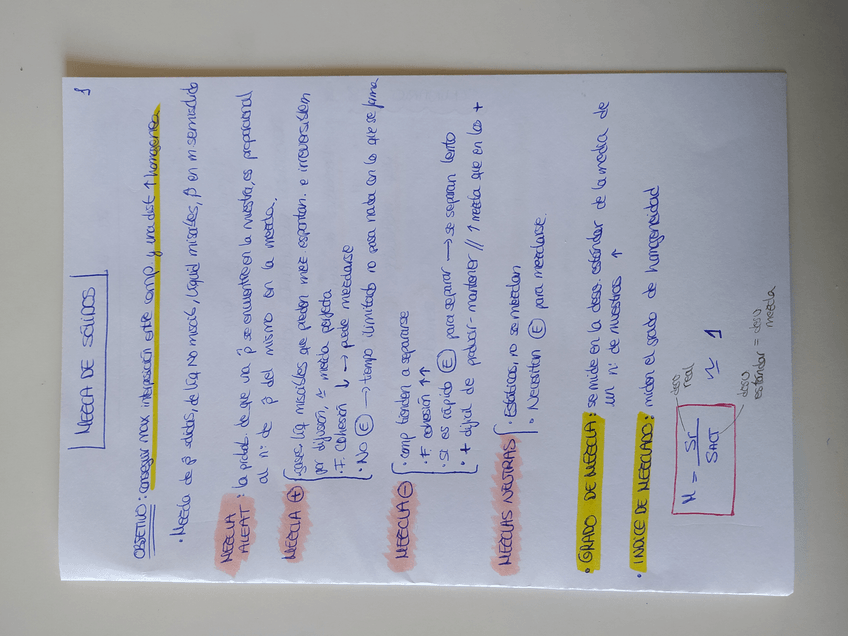 1
MEZCLA DE SÓLIDOS
OBJETIVO: conseguir max interposición entre comp y una dist ↑ homogénea
· Mezcla de p̂ sólidas, de líq No miscib, líquid miscibles, p̂ en m semisólido
MEZCLA ALEAT: la probab de que una p̂ se encuentre en la muestra, es proporcional
al nº de p̂ del mismo en la mezcla.
MEZCLA ⊕ · gases, líq miscibles que pueden mezc espontan. e irreversiblem
por difusión, ≈ mezcla perfecta
· F. Cohesión ↓ → puede mezclarse
· No Ⓔ → tiempo ilimitado no pasa nada en lo que se forma
MEZCLA ⊖ · comp tienden a separarse
· F cohesión ↑↑
· Si es rápido Ⓔ para separar → se separan lento
· + difícil de producir-mantener // ↑ mezcla que en las +
MEZCLAS NEUTRAS · Estáticas, no se mezclan
· Necesitan Ⓔ para mezclarse.
· GRADO DE MEZCLA: se mide en la desv. estándar de la media de
un nº de muestras ↑
· INDICE DE MEZCLADO: miden el grado de homogeneidad
desv
real
M = Sr / SACT ≈ 1
desv
estándar = desv
mezcla